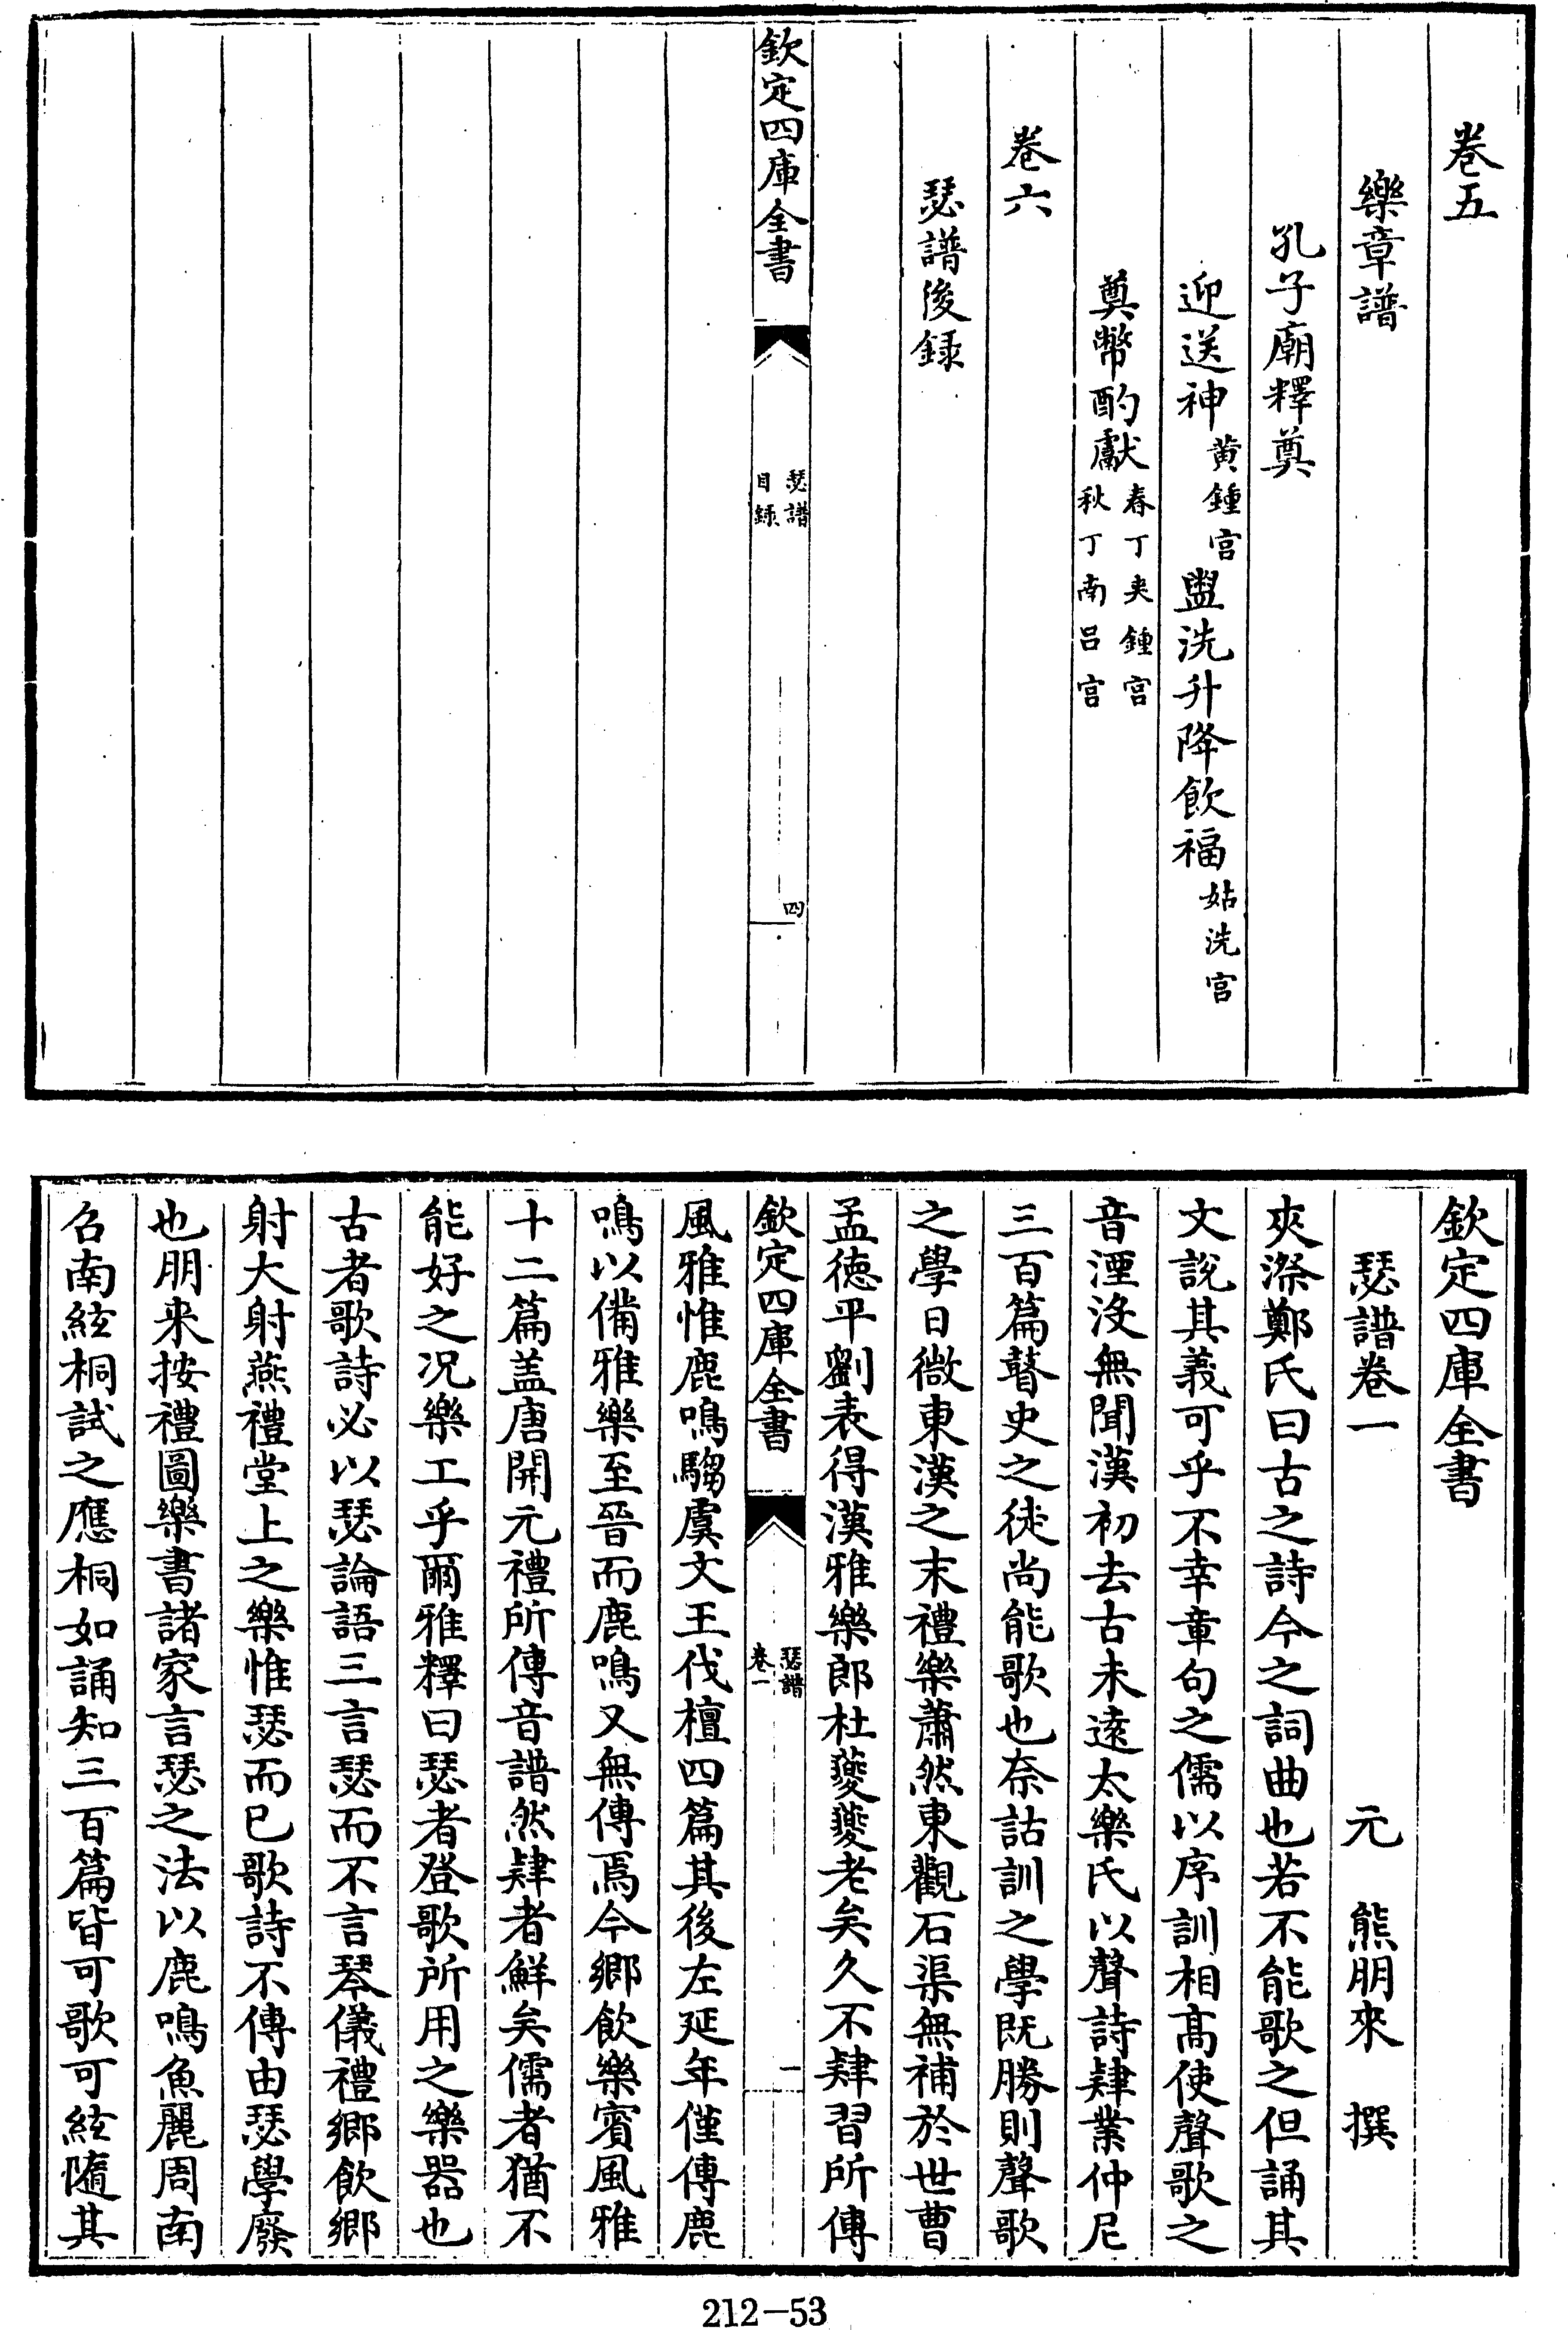 卷五
樂章譜
孔子廟釋奠
迎送神黄鍾宫盥洗升降飲福姑洗宫
奠幣酌獻春丁夾鍾宫秋丁南吕宫
卷六
瑟譜後録
欽定四庫全書
瑟譜
目録
四
欽定四庫全書
瑟譜卷一
元 熊朋來 撰
夾漈鄭氏曰古之詩今之詞曲也若不能歌之但誦其
文說其義可乎不幸章句之儒以序訓相髙使聲歌之
音湮沒無聞漢初去古未逺太樂氏以聲詩肄業仲尼
三百篇瞽史之徒尚能歌也奈詁訓之學既勝則聲歌
之學日微東漢之末禮樂蕭然東觀石渠無補於世曹
孟德平劉表得漢雅樂郎杜夔夔老矣久不肄習所傳
欽定四庫全書
瑟譜
卷一
一
風雅惟鹿鳴騶虞文王伐檀四篇其後左延年僅傳鹿
鳴以備雅樂至晉而鹿鳴又無傳焉今鄉飲樂賓風雅
十二篇盖唐開元禮所傳音譜然肄者鮮矣儒者猶不
能好之况樂工乎爾雅釋曰瑟者登歌所用之樂器也
古者歌詩必以瑟論語三言瑟而不言琴儀禮鄉飲鄉
射大射燕禮堂上之樂惟瑟而已歌詩不傳由瑟學廢
也朋来按禮圖樂書諸家言瑟之法以鹿鳴魚麗周南
召南絃桐試之應桐如誦知三百篇皆可歌可絃隨其
212-53